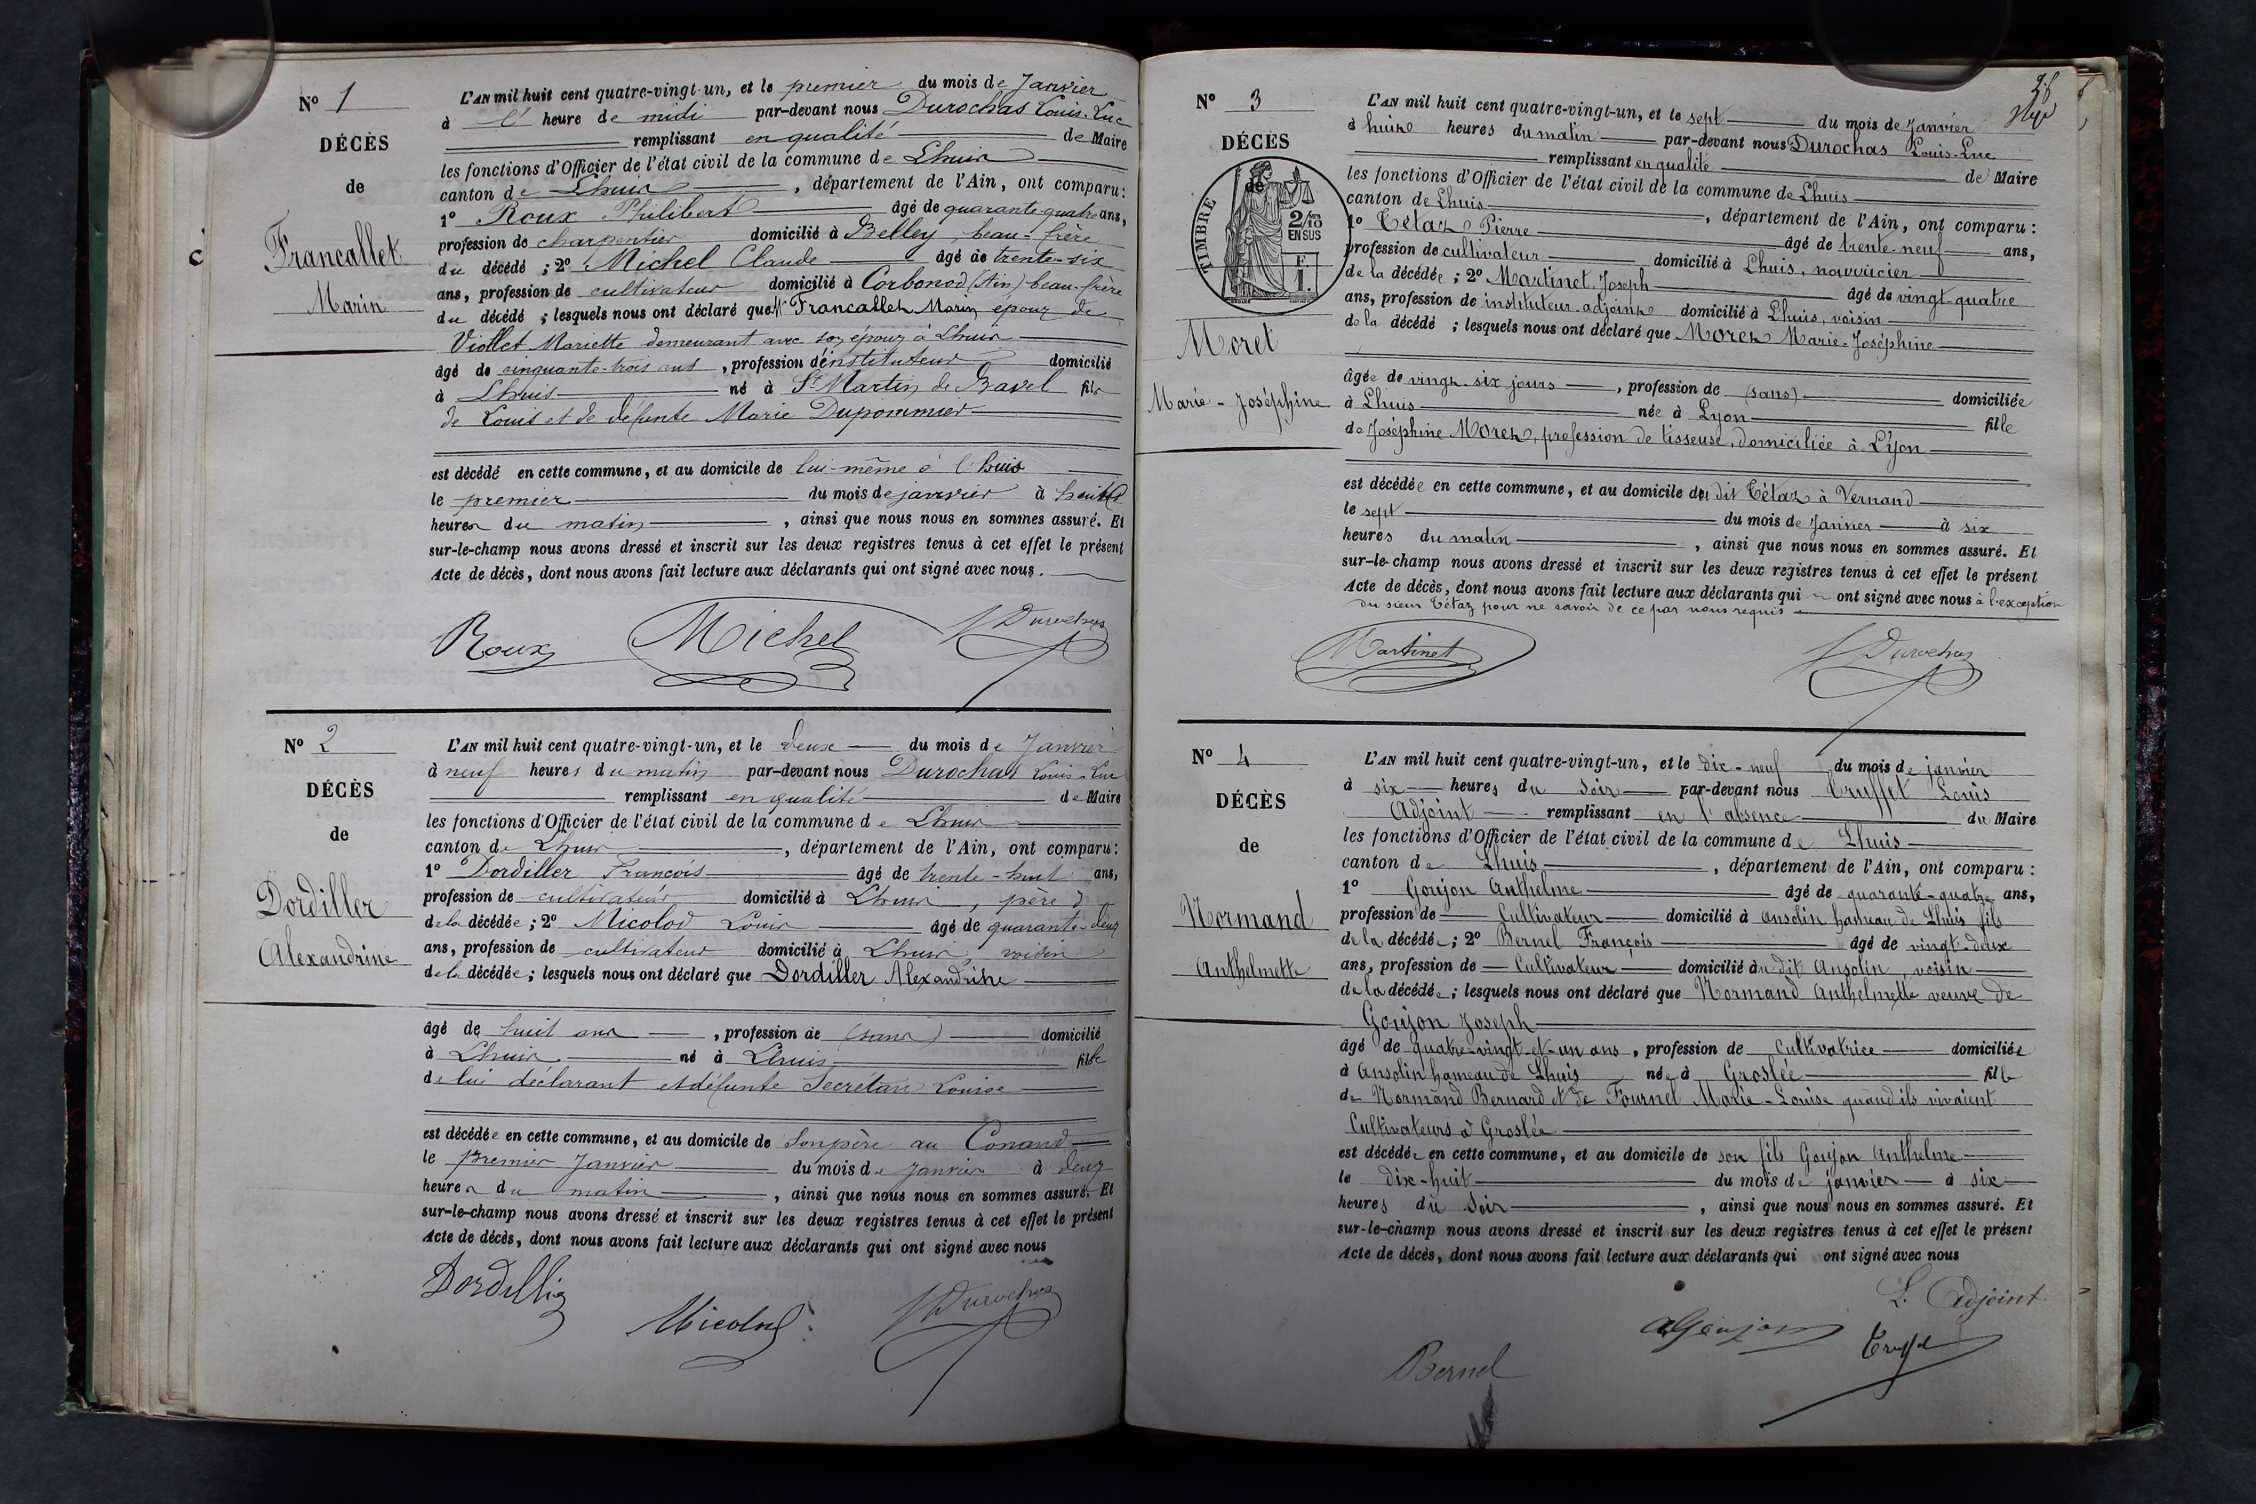 N° 1
DÉCÈS
de
Francallet
Marin
L'AN mil huit cent quatre-vingt-un, et le premier du mois de Janvier
à heure de midi par-devant nous Durochas Louis-Luc
remplissant en qualité de Maire
les fonctions d'Officier de l'état civil de la commune de Lhuis
canton de Lhuis, département de l'Ain, ont comparu:
1° Roux Philibert âgé de quarante-quatre ans,
profession de charpentier domicilié à Belley, beau-frère
du décédé ; 2° Michel Claude âgé de trente-six
ans, profession de cultivateur domicilié à Corbonod (Ain) beau-frère
du décédé ; lesquels nous ont déclaré que Francallet Marin époux de
Viollet Mariette demeurant avec son époux à Lhuis
âgé de cinquante-trois ans, profession d'instituteur domicilié
à Lhuis né à St Martin de Bavel fils
de Louis et de défunte Marie Dupommier
est décédé en cette commune, et au domicile de lui-même à Lhuis
le premier du mois de janvier à huit
heures du matin, ainsi que nous nous en sommes assuré. Et
sur-le-champ nous avons dressé et inscrit sur les deux registres tenus à cet effet le présent
Acte de décès, dont nous avons fait lecture aux déclarants qui ont signé avec nous.
Roux Michel Durochas
N° 2
DÉCÈS
de
Dordiller
Alexandrine
L'AN mil huit cent quatre-vingt-un, et le deux du mois de Janvier
à neuf heures du matin par-devant nous Durochas Louis-Luc
remplissant en qualité de Maire
les fonctions d'Officier de l'état civil de la commune de Lhuis
canton de Lhuis, département de l'Ain, ont comparu:
1° Dordiller François âgé de trente-huit ans,
profession de cultivateur domicilié à Lhuis, père
de la décédée ; 2° Micolod Louis âgé de quarante-deux
ans, profession de cultivateur domicilié à Lhuis, voisin
de la décédée ; lesquels nous ont déclaré que Dordiller Alexandrine
âgé de huit ans, profession de (sans) domicilié
à Lhuis né à Lhuis fille
de lui déclarant et défunte Secrétan Louise
est décédée en cette commune, et au domicile de son père au Conand
le premier Janvier du mois de janvier à deux
heures du matin, ainsi que nous nous en sommes assuré. Et
sur-le-champ nous avons dressé et inscrit sur les deux registres tenus à cet effet le présent
Acte de décès, dont nous avons fait lecture aux déclarants qui ont signé avec nous
Micolod Durochas
N° 3
DÉCÈS
de
TIMBRE
2/10
EN SUS
Moret
Marie-Joséphine
L'AN mil huit cent quatre-vingt-un, et le sept du mois de Janvier
à huit heures du matin par-devant nous Durochas Louis-Luc
remplissant en qualité de Maire
les fonctions d'Officier de l'état civil de la commune de Lhuis
canton de Lhuis, département de l'Ain, ont comparu :
1° Tétaz Pierre âgé de trente-neuf ans,
profession de cultivateur domicilié à Lhuis, nourricier
de la décédée ; 2° Martinet Joseph âgé de vingt-quatre
ans, profession de instituteur-adjoint domicilié à Lhuis, voisin
de la décédé ; lesquels nous ont déclaré que Moret Marie-Joséphine
âgée de vingt-six jours, profession de (sans) domiciliée
à Lhuis née à Lyon fille
de Joséphine Moret, profession de tisseuse, domiciliée à Lyon
est décédée en cette commune, et au domicile du dit Tétaz à Vernand
le sept du mois de Janvier à six
heures du matin, ainsi que nous nous en sommes assuré. Et
sur-le-champ nous avons dressé et inscrit sur les deux registres tenus à cet effet le présent
Acte de décès, dont nous avons fait lecture aux déclarants qui ont signé avec nous à l'exception
du sieur Tétaz pour ne savoir de ce par nous requis
Martinet Durochas
N° 4
DÉCÈS
de
Normand
Anthelmette
L'AN mil huit cent quatre-vingt-un, et le dix-neuf du mois de janvier
à six heures du soir par-devant nous Truffet Louis
Adjoint remplissant en l'absence du Maire
les fonctions d'Officier de l'état civil de la commune de Lhuis
canton de Lhuis, département de l'Ain, ont comparu :
1° Goujon Anthelme âgé de quarante-quatre ans,
profession de Cultivateur domicilié à Ansolin hameau de Lhuis fils
de la décédée ; 2° Bernel François âgé de vingt-deux
ans, profession de Cultivateur domicilié au dit Ansolin, voisin
de la décédée ; lesquels nous ont déclaré que Normand Anthelmette veuve de
Goujon Joseph
âgé de quatre-vingt-et-un ans, profession de Cultivatrice domiciliée
à Ansolin hameau de Lhuis née à Groslée fille
de Normand Bernard et de Fournel Marie-Louise quand ils vivaient
Cultivateurs à Groslée
est décédée en cette commune, et au domicile de son fils Goujon Anthelme
le dix-huit du mois de janvier à six
heures du soir, ainsi que nous nous en sommes assuré. Et
sur-le-champ nous avons dressé et inscrit sur les deux registres tenus à cet effet le présent
Acte de décès, dont nous avons fait lecture aux déclarants qui ont signé avec nous
L. Adjoint
Bernel AGoujon Truffet